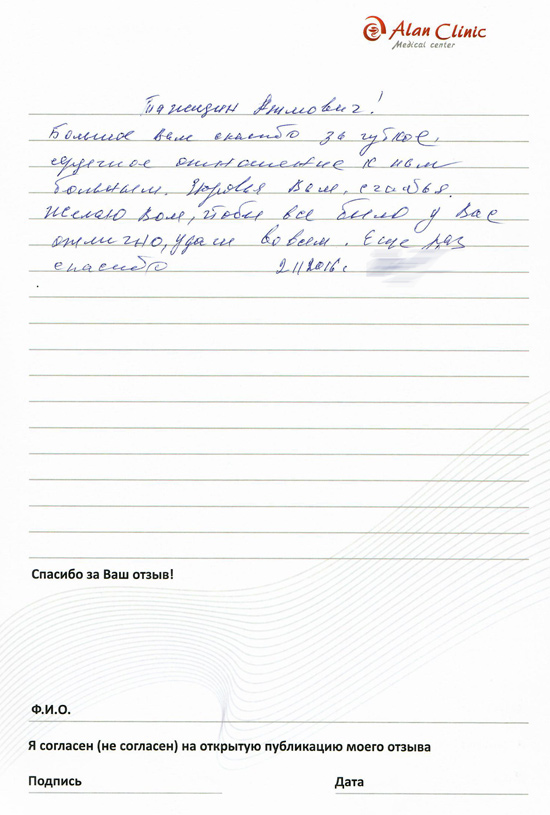 Alan Clinic
Medical center
Тажидин Атмович!
Большое вам спасибо за чуткое,
сердечное отношение к нам
больным. Здоровья Вам, счастья.
Желаю Вам, чтобы все было у Вас
отлично, удачи во всем. Еще раз
спасибо 2 11 2016 г
Спасибо за Ваш отзыв!
Ф.И.О.
Я согласен (не согласен) на открытую публикацию моего отзыва
Подпись Дата